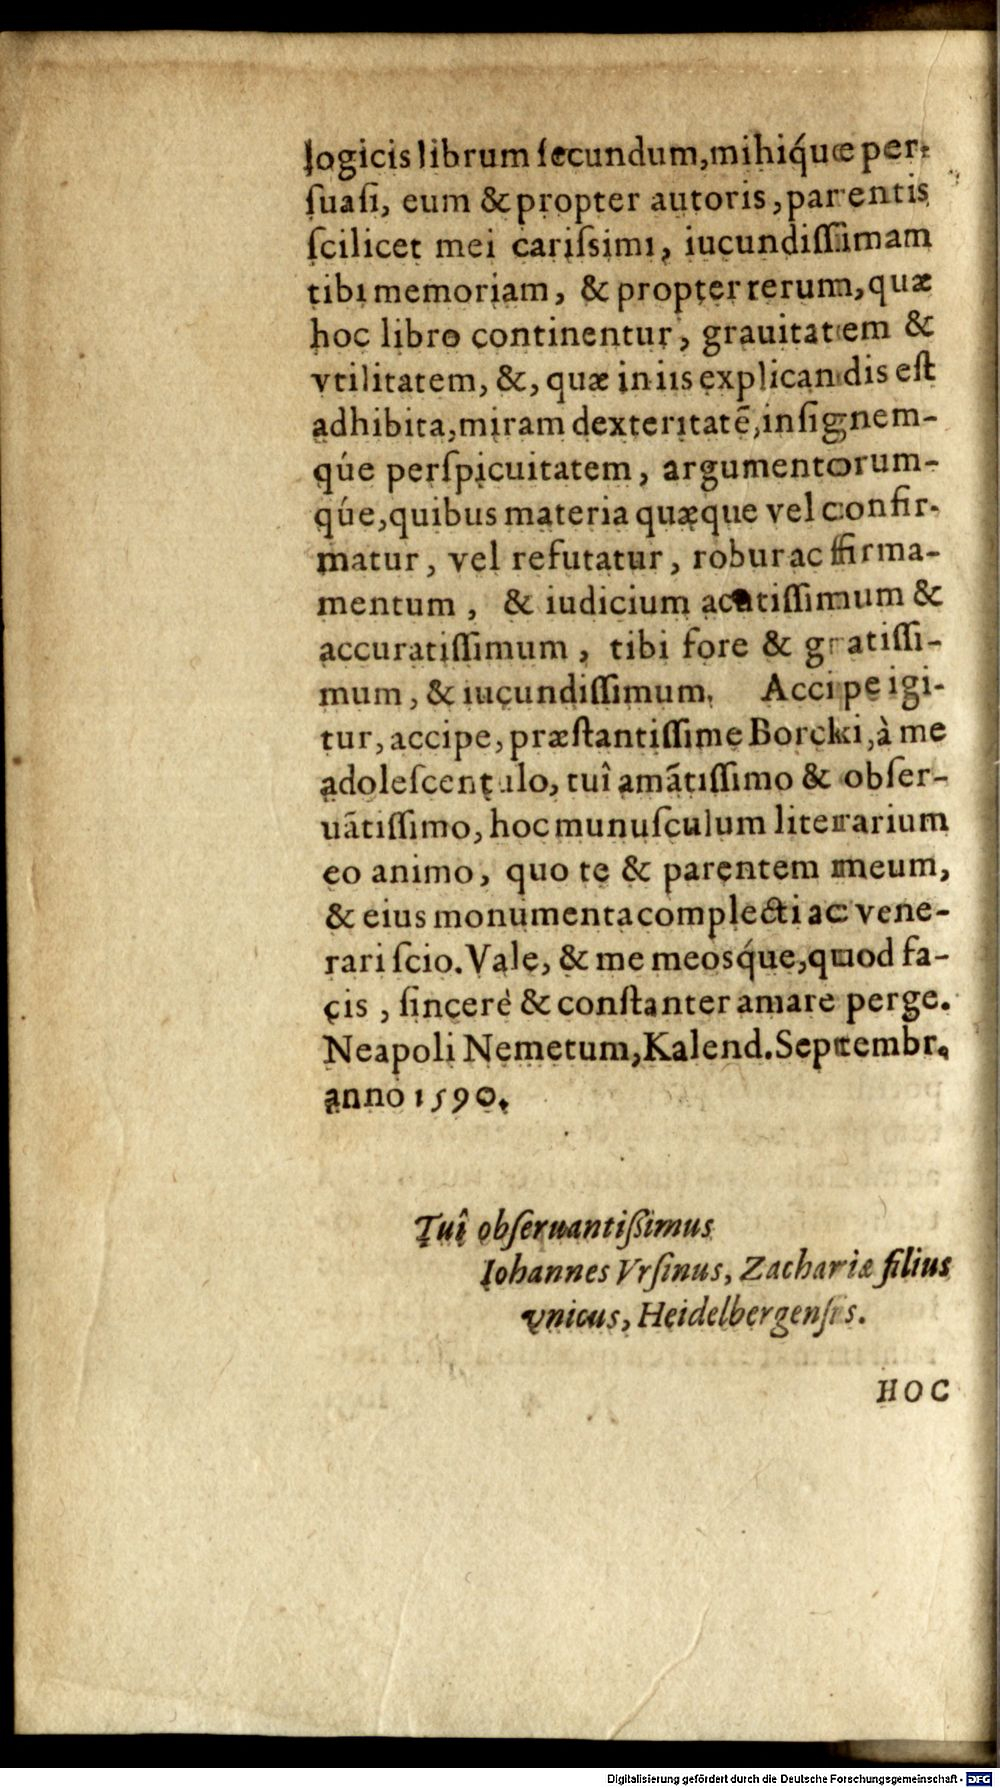 logicis librum ſecundum, mihiq́ue per-
ſuaſi, eum & propter autoris, parentis
ſcilicet mei cariſsimi, iucundiſſimam
tibi memoriam, & propter rerum, quæ
hoc libro continentur, grauitatem &
vtilitatem, &, quæ in iis explicandis eſt
adhibita, miram dexteritatẽ, inſignem-
q́ue perſpicuitatem, argumentorum-
q́ue, quibus materia quæque vel confir-
matur, vel refutatur, robur ac firma-
mentum, & iudicium acutiſſimum &
accuratiſſimum, tibi fore & gratiſſi-
mum, & iucundiſſimum. Accipe igi-
tur, accipe, præſtantiſſime Borcki, à me
adoleſcentulo, tuî amãtiſſimo & obſer-
uãtiſſimo, hoc munuſculum literarium
eo animo, quo te & parentem meum,
& eius monumenta complecti ac vene-
rari ſcio. Vale, & me meosq́ue, quod fa-
cis, ſincerè & conſtanter amare perge.
Neapoli Nemetum, Kalend. Septembr.
anno 1590.
Tuî obſeruantiſsimus
Iohannes Vrſinus, Zachariæ filius
vnicus, Heidelbergenſis.
HOC
Digitalisierung gefördert durch die Deutsche Forschungsgemeinschaft - DFG